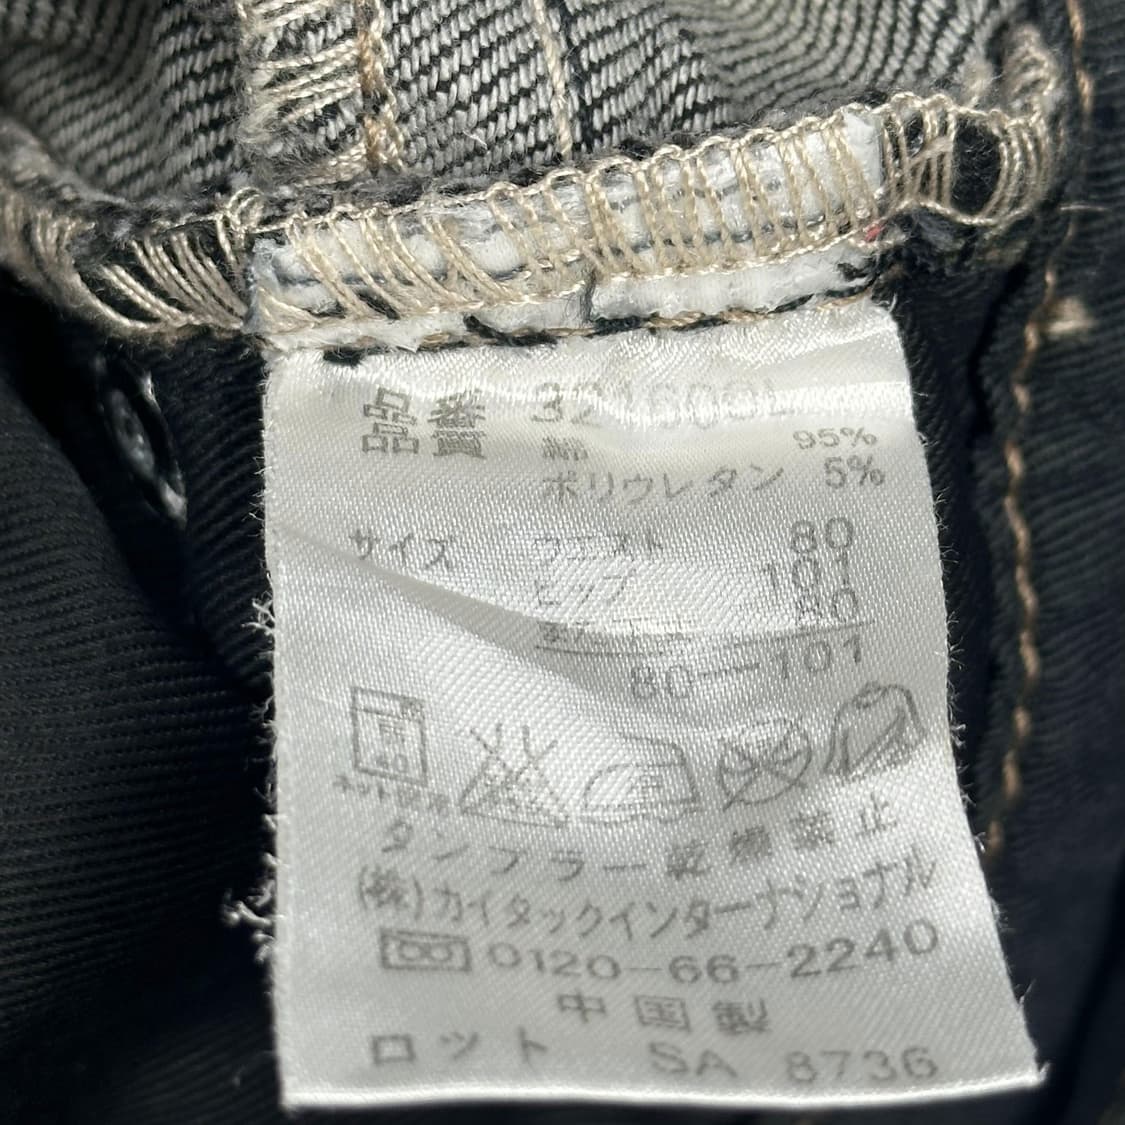 品番
品質 綿 95%
ポリウレタン 5%
サイズ ウエスト 80
ヒップ 101
80
80－101
ネット使用
タンブラー乾燥禁止
(株)カイタックインターナショナル
0120－66－2240
中国製
ロット SA 8736